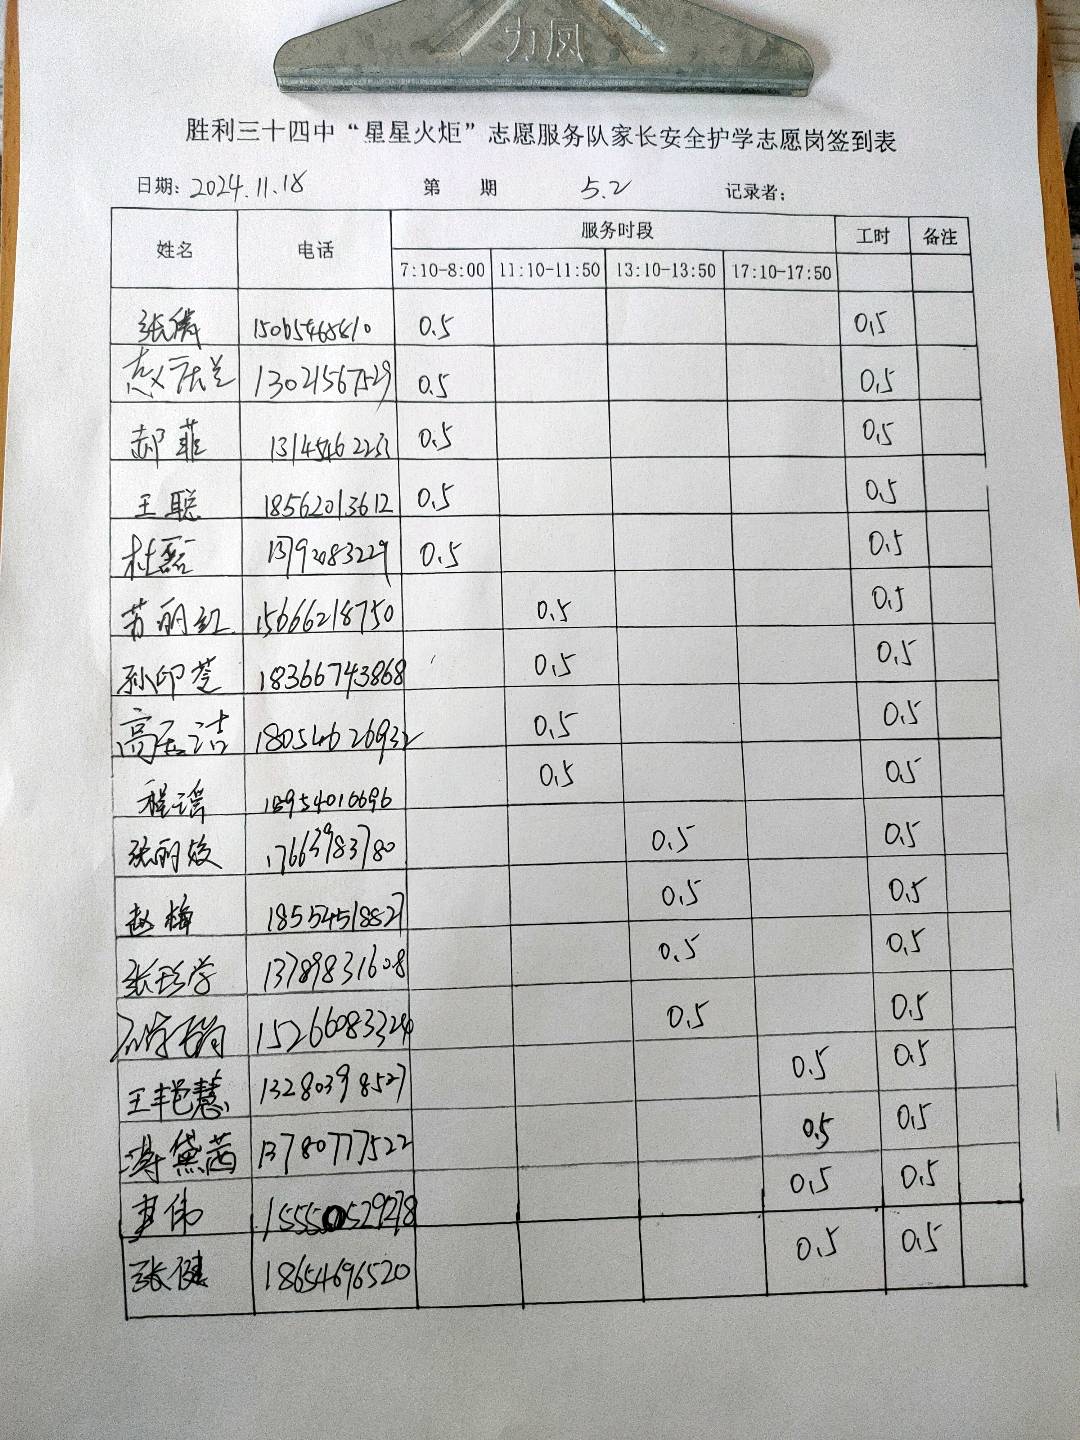 力凤
胜利三十四中“星星火炬”志愿服务队家长安全护学志愿岗签到表
日期: 2024.11.18 第 期 5.2 记录者:
姓名 电话 服务时段 工时 备注
7:10-8:00 11:10-11:50 13:10-13:50 17:10-17:50
0.5 0.5
13021567529 0.5 0.5
郝菲 0.5 0.5
王聪 18562013612 0.5 0.5
杜磊 13792083229 0.5 0.5
苏丽红 15666218750 0.5 0.5
孙印芝 18366743868 0.5 0.5
18054626932 0.5 0.5
程谣 18954010696 0.5 0.5
张丽姣 17663983780 0.5 0.5
赵梅 18554518827 0.5 0.5
13789831608 0.5 0.5
0.5 0.5
王艳慧 13280398527 0.5 0.5
黛茜 13780777522 0.5 0.5
0.5 0.5
张健 18654696520 0.5 0.5